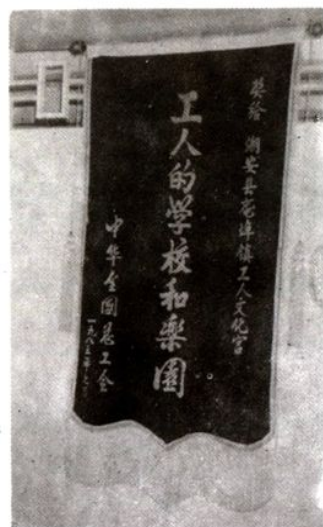 奖给 潮安县庵埠镇工人文化宫
工人的学校和樂園
中华全國总工会
一九八三年